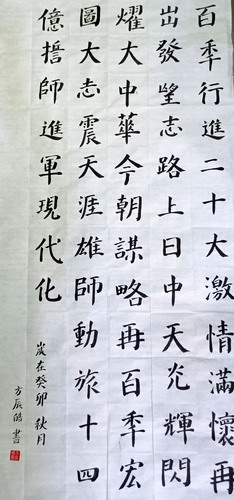 百年行進二十大激情滿懷再
出發望志路上日中天光輝閃
燿大中華今朝謀略再百年宏
圖大志震天涯雄師動旅十四
億擔師進軍現代化
歲在癸卯秋月
方辰皓書